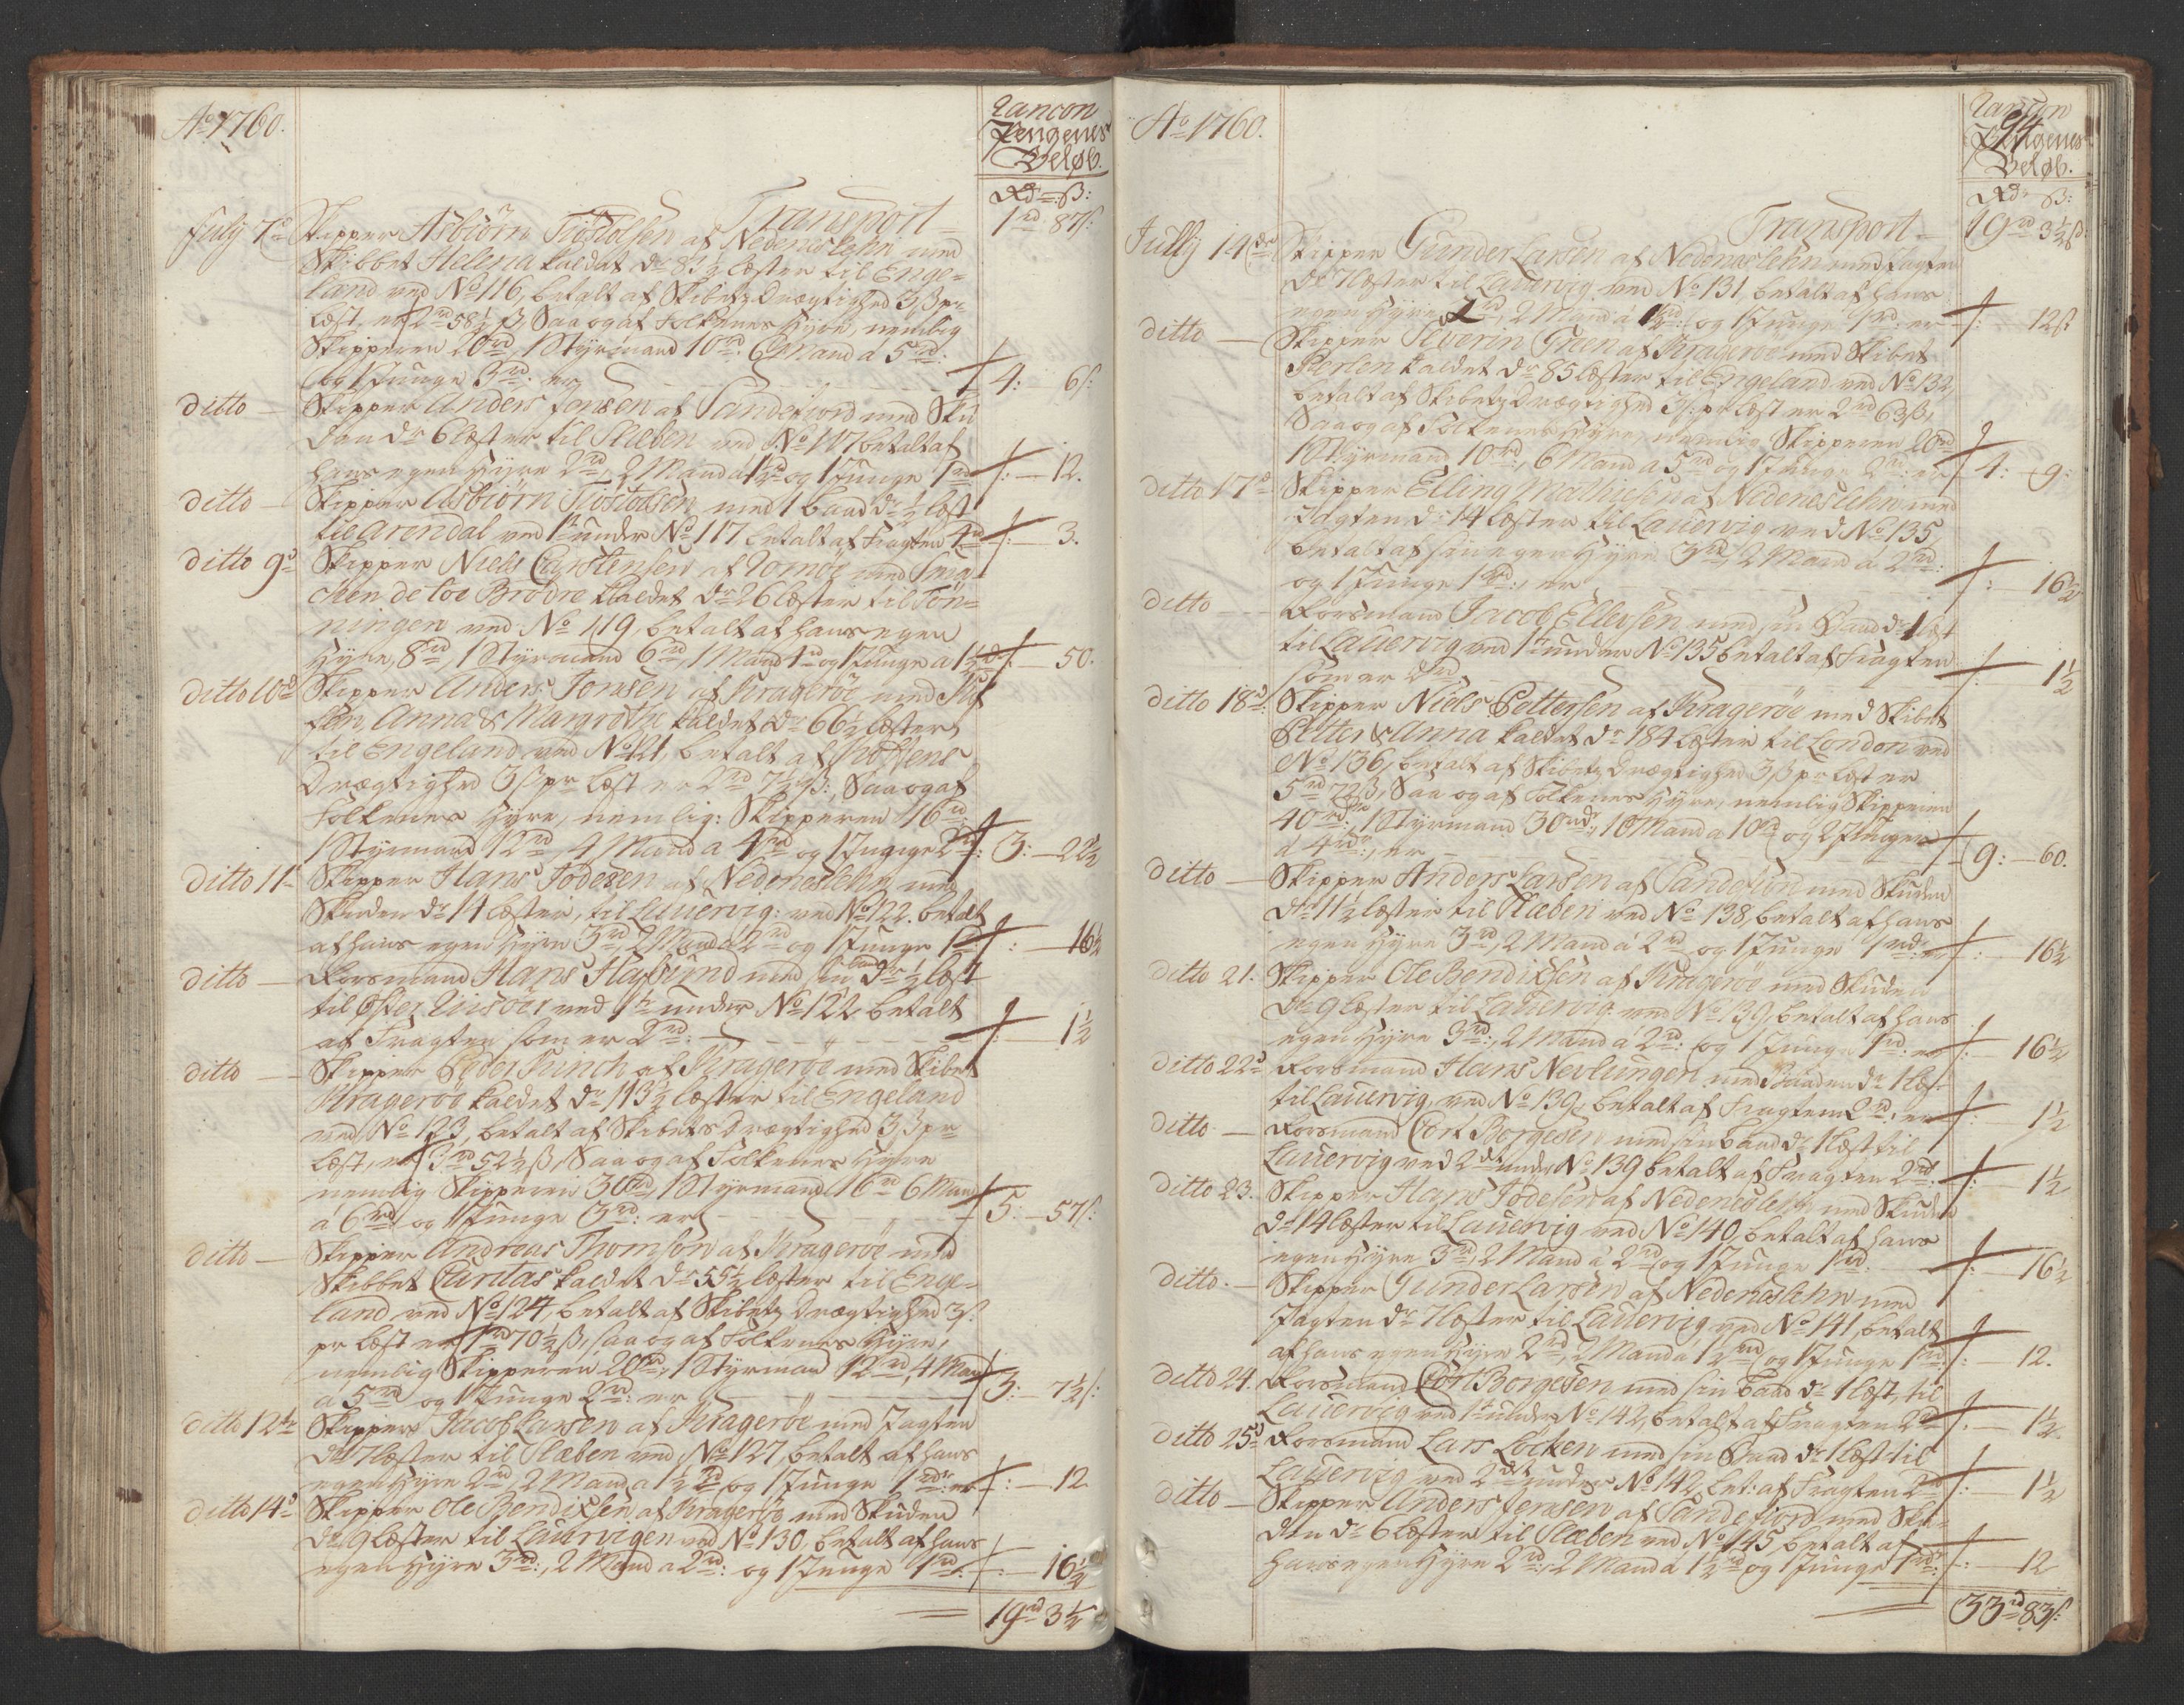 Ao 1760.
Rancon
Pengenes
Beløb.
Rdr ß:
Transport — 1rd 87ß:
July 7d Skipper Asbiørn Tostolsen af Nedenæslehn med
Skibbet Helena kaldet dr 83½ læster til Enge-
land ved No 116, betalt af Skibets Drægtighed 3ß pr
læst, er 2rd 58½ ß, Saa og af Folkenes Hyre, nemlig
Skipperen 20rd, 1 Styrmand 10rd: 6 Mand á 5rd:
og 1 Junge 3rd: er — 4: — 6ß:
ditto — Skipper Anders Jonsen af Sandefiord med Sku
dan dr 6 læster til Slæben ved No 117 betalt af
hans egen Hyre 2rd, 2 Mand á 1½rd og 1 Junge 1rd — : — 12.
ditto — Skipper Asbiørn Tostolsen med 1 baad dr ½ læst
til Arendal ved 1t under No 117 betalt af Fragten 4rd — : — 3.
ditto 9d Skipper Niels Carstensen af Romöe med Sma-
cken de toe Brødre kaldet dr 26 læster til Tön-
ningen ved No 119, betalt af hans egen
Hyre, 8rd, 1 Styrmand 6rd, 1 Mand 1rd og 1 Junge a 1½rd — : — 50.
ditto 10d Skipper Anders Jonsen af Kragerøe med Kof
fen, Anna & Margrethe kaldet dr 66½ læster
til Engeland ved No 121, betalt af Koffens
Drægtighed 3ß pr læst er 2rd 7½ß:, Saa og af
Folkenes Hyre, nemlig: Skipperen 16rd:
1 Styrmand 12rd, 4 Mand a 4rd og 1 Junge 2rd: 3: — 22½
ditto 11t Skipper Hans Todesen af Nedeneslehn med
Skuden dr 14 læster, til Lauervig: ved No 122. betalt
af hans egen Hyre 3rd, 2 Mand á 2rd og 1 Junge 1rd — : — 16½
ditto — Forsmand Hans Haslund med sin baad dr ½ læst
til Øster Riisøer ved 1t under No 122 betalt
af Fragten som er 2rd: — : — 1½
ditto — Skipper Peder Finch af Kragerøe med Skibet
Kragerøe kaldet dr 113½ læster til Engeland
ved No 123, betalt af Skibets Drægtighed 3ß pr
læst, er 3rd 52½ ß, Saa og af Folkenes Hyre
nemlig Skipperen 30rd, 1 Styrmand 16rd 6 Mand
á 6rd og 1 Junge 3rd: er — 5: — 57ß:
ditto — Skipper Andreas Thomsen af Kragerøe med
Skibbet Caritas kaldet dr 55½ læster til Enge-
land ved No 124, betalt af Skibets Drægtighed 3ß
pr læst er 1rd 70½ ß, saa og af Folkenes Hyre,
nemlig Skipperen 20rd, 1 Styrmand 12rd, 4 Mand
á 5rd og 1 Junge 2rd: er — 3: — 7½ß:
ditto 12te Skipper Jacob Larsen af Kragerøe med Jagten
dr 7 læster til Slæben ved No 127, betalt af hans
egen Hyre 2rd, 2 Mand a 1½rd og 1 Junge 1rdr: er : — 12
ditto 14d Skipper Ole Bendixsen af Kragerøe med Skuden
dr 9 læster til Lauervigen ved No 130, betalt af hans
egen Hyre 3rd:, 2 Mand a 2rd: og 1 Junge 1rd: — : — 16½
19rd 3½
Ao 1760.
94
Rancon
Pengenes
Beløb.
Rdr ß:
Transport — 19rd 3½ß
Jully 14de Skipper Gunder Larsen af Nedenæslehn med Jagten
dr 7 læster til Lauervig ved No 131, betalt af hans
egen Hyre 2rd, 2 Mand á 1½rd: og 1 Junge 1rd: er — : — 12ß
ditto — Skipper Severin Træn af Kragerøe med Skibet
Perlen kaldet dr 85 læster til Engeland ved No 132,
betalt af Skibets Drægtighed 3ß: pr læst er 2rd 63ß,
Saa og af Folkenes Hyre, nemlig Skipperen 20rd
1 Styrmand 10rd:, 6 Mand a 5rd og 1 Junge 2rd: er — 4: — 9:
ditto 17d Skipper Elling Mathiesen af Nedenæslehn med
Jagten dr 14 læster til Lauervig ved No 135,
betalt af sin egen Hyre 3rd, 2 Mand á 2rd:
og 1 Junge 1rd:, er — : — 16½
ditto — Forsmand Jacob Ellefsen med sin Baad dr 1 læst
til Lauervig ved 1t under No 135 betalt af Fragten
som er 2rd — : — 1½
ditto 18d: Skipper Niels Pettersen af Kragerøe med Skibet
Petter & Anna kaldet dr 184 læster til London ved
No 136, betalt af Skibets Drægtighed 3ß pr læst er
5rd 72ß, Saa og af Folkenes Hyre, nemlig Skipperen
40rd:, 1 Styrmand 30rdr, 10 Mand a 10rd og 2 Junger
á 4rdr:, er — 9: — 60.
ditto — Skipper Anders Larsen af Sandefiord med Skuden
dr 11½ læster til Slæben ved No 138, betalt af hans
egen Hyre 3rd, 2 Mand á 2rd og 1 Junge 1rdr: er — : — 16½
ditto 21. Skipper Ole Bendixsen af Kragerøe med Skuden
dr 9 læster til Lauervig ved No 139, betalt af hans
egen Hyre 3rd:, 2 Mand á 2rd: og 1 Junge 1rd: er : — 16½
ditto 22d Forsmand Hans Nevlungen med Baaden dr 1 læst
til Lauervig, ved No 139, betalt af Fragten 2rd: er : — 1½
ditto — Forsmand Cort Borgesen med sin baad dr 1 læst til
Lauervig ved 2det under No 139 betalt af Fragten 2rd: — : — 1½
ditto 23. Skipper Hans Todesen af Nedeneslehn med Skuden
dr 14 læster til Lauervig ved No 140, betalt af hans
egen Hyre 3rd, 2 Mand á 2rd og 1 Junge 1rd: — : — 16½
ditto. — Skipper Gunder Larsen af Nedenæslehn med
Jagten dr 7 læster til Lauervig ved No 141, betalt
af hans egen Hyre 2rd, 2 Mand a 1½rd og 1 Junge 1rd: : — 12.
ditto 24. Forsmand Cort Borgesen med sin baad dr 1 læst, til
Lauervig ved 1t under No 142, betalt af Fragten 2rd : — 1½
ditto 25d Forsmand Lars Löcken med sin Baad dr 1 læst til
Lauervig ved 2det under No 142, bet: af Fragten 2rd : — 1½
ditto — Skipper Anders Jensen af Sandefiord med Sku-
den dr 6 læster til Slæben ved No 145 betalt af
hans egen Hyre 2rd:, 2 Mand á 1½rd og 1 Junge 1rd: — : — 12
33rd 83ß: